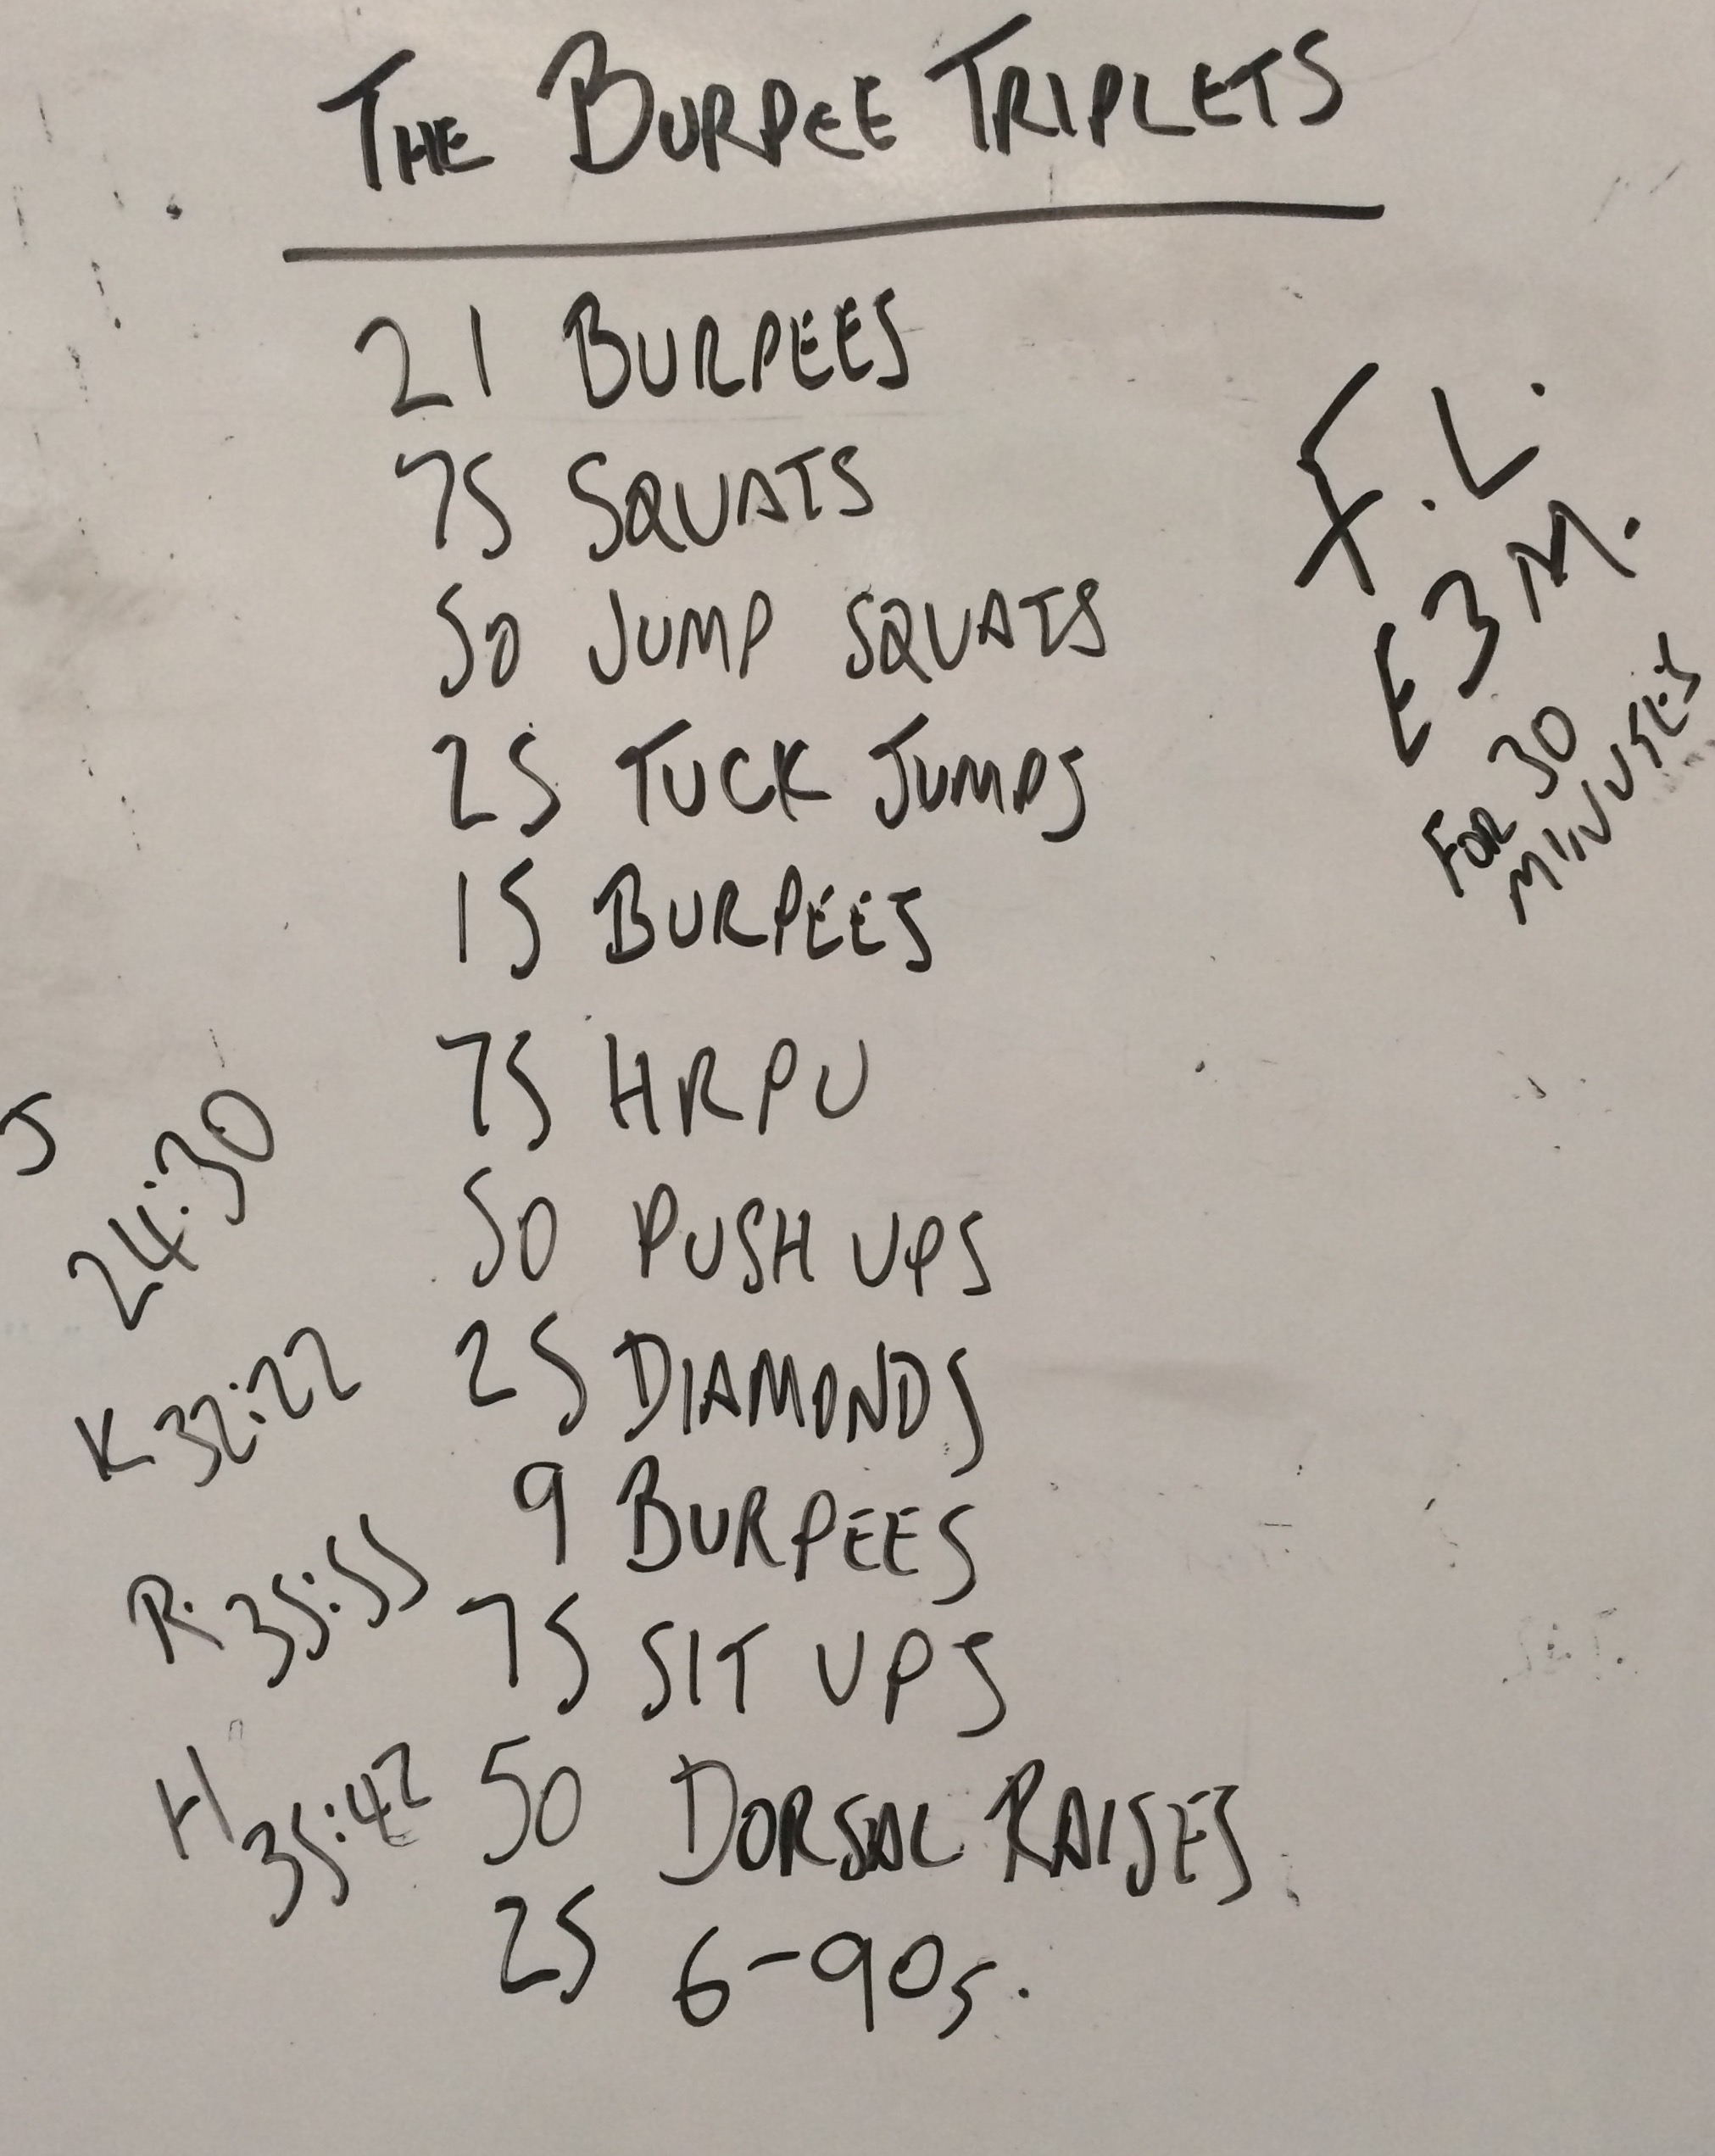 THE BURPEE TRIPLETS
21 BURPEES
75 SQUATS
50 JUMP SQUATS
25 TUCK JUMPS
15 BURPEES
75 HRPU
50 PUSH UPS
25 DIAMONDS
9 BURPEES
75 SIT UPS
50 DORSAL RAISES
25 6-90s.
F.L.
E3M.
FOR 30
MINUTES
J
24:30
K 32:22
R. 35:55
H 35:42